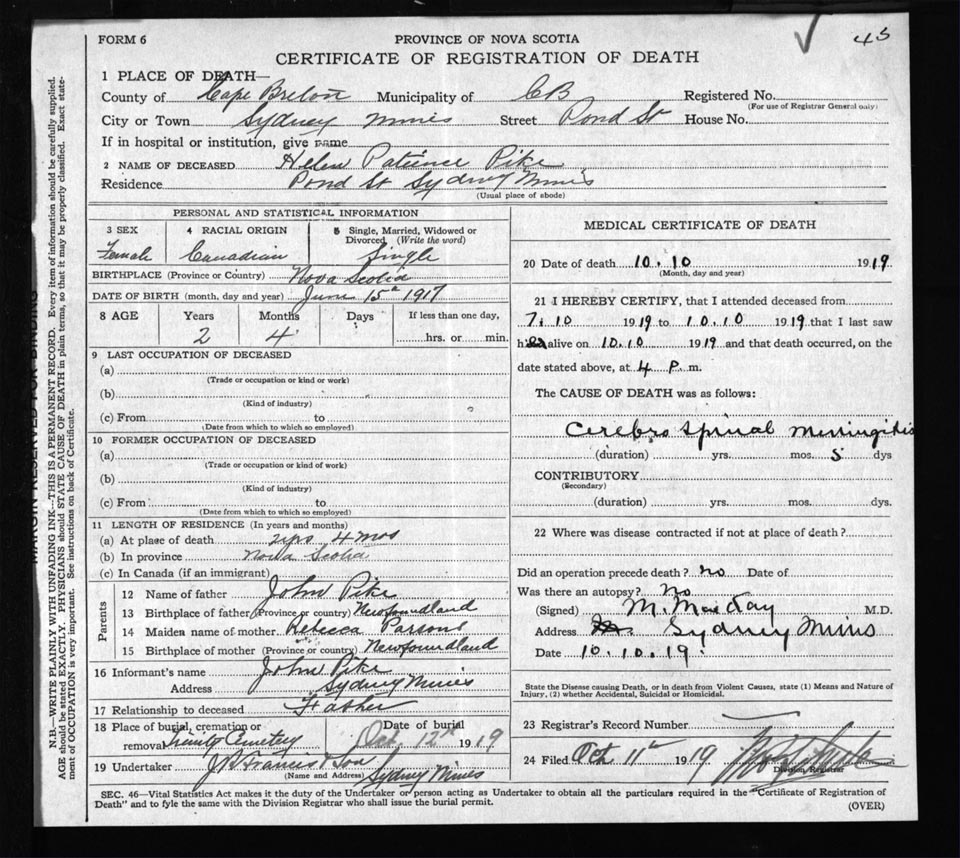 45
FORM 6
PROVINCE OF NOVA SCOTIA
CERTIFICATE OF REGISTRATION OF DEATH
1 PLACE OF DEATH—
County of Cape Breton Municipality of CB Registered No.
(For use of Registrar General only)
City or Town Sydney Mines Street Pond St House No.
If in hospital or institution, give name
2 NAME OF DECEASED Helen Patience Pike
Residence Pond St Sydney Mines
(Usual place of abode)
PERSONAL AND STATISTICAL INFORMATION
3 SEX 4 RACIAL ORIGIN 5 Single, Married, Widowed or
Divorced (Write the word)
Female Canadian Single
BIRTHPLACE (Province or Country) Nova Scotia
DATE OF BIRTH (month, day and year) June 15th 1917
8 AGE Years Months Days If less than one day,
2 4 hrs. or min.
9 LAST OCCUPATION OF DECEASED
(a)
(Trade or occupation or kind or work)
(b)
(Kind of industry)
(c) From to
(Date from which to which so employed)
10 FORMER OCCUPATION OF DECEASED
(a)
(Trade or occupation or kind of work)
(b)
(Kind of industry)
(c) From to
(Date from which to which so employed)
11 LENGTH OF RESIDENCE (In years and months)
(a) At place of death 2yrs 4 mos
(b) In province Nova Scotia
(c) In Canada (if an immigrant)
Parents
12 Name of father John Pike
13 Birthplace of father (Province or country) Newfoundland
14 Maiden name of mother Rebecca Parsons
15 Birthplace of mother (Province or country) Newfoundland
16 Informant's name John Pike
Address Sydney Mines
17 Relationship to deceased Father
18 Place of burial, cremation or Date of burial
removal Trinity Cemetry Oct 12th 1919
19 Undertaker J Francis & Son
(Name and Address) Sydney Mines
MEDICAL CERTIFICATE OF DEATH
20 Date of death 10.10 1919
(Month, day and year)
21 I HEREBY CERTIFY, that I attended deceased from
7.10 1919 to 10.10 1919 that I last saw
her alive on 10.10 1919 and that death occurred, on the
date stated above, at 4 P. m.
The CAUSE OF DEATH was as follows:
Cerebro Spinal Meningitis
(duration) yrs. mos. 5 dys
CONTRIBUTORY
(Secondary)
(duration) yrs. mos. dys.
22 Where was disease contracted if not at place of death?
Did an operation precede death? no Date of
Was there an autopsy? No
(Signed) M. MacKay M.D.
Address Sydney Mines
Date 10.10.19.
State the Disease causing Death, or in death from Violent Causes, state (1) Means and Nature of
Injury, (2) whether Accidental, Suicidal or Homicidal.
23 Registrar's Record Number
24 Filed Oct 11th 1919
Division Registrar
SEC. 46—Vital Statistics Act makes it the duty of the Undertaker or person acting as Undertaker to obtain all the particulars required in the "Certificate of Registration of
Death" and to fyle the same with the Division Registrar who shall issue the burial permit.
(OVER)
MARGIN RESERVED FOR BINDING
N.B.—WRITE PLAINLY WITH UNFADING INK—THIS IS A PERMANENT RECORD. Every item of information should be carefully supplied.
AGE should be stated EXACTLY. PHYSICIANS should STATE CAUSE OF DEATH in plain terms, so that it may be properly classified. Exact state-
ment of OCCUPATION is very important. See instructions on back of Certificate.